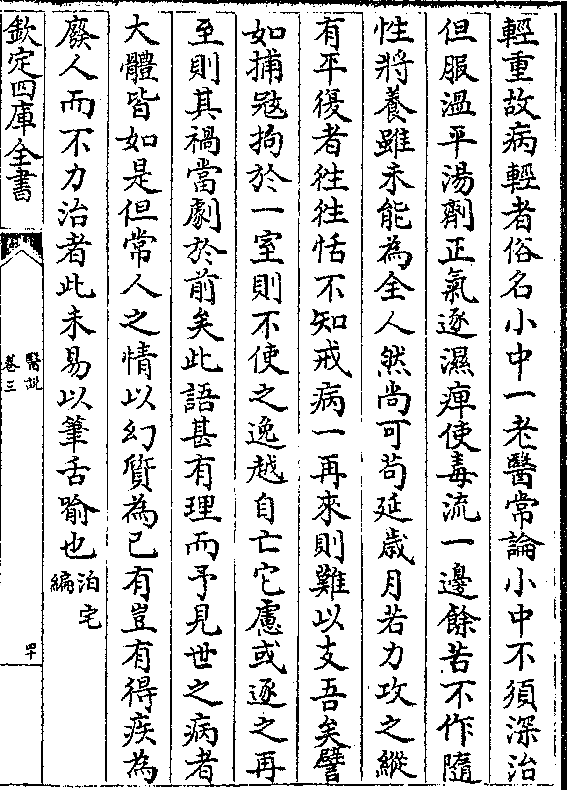 輕重故病輕者俗名小中一老醫常論小中不須深治
但服溫平湯劑正氣逐濕痺使毒流一邊餘苦不作隨
性將養雖未能為全人然尚可茍延歲月若力攻之縱
有平復者往往恬不知戒病一再來則難以支吾矣譬
如捕冦拘於一室則不使之逸越自亡它慮或逐之再
至則其禍當劇於前矣此語甚有理而予見世之病者
大體皆如是但常人之情以幻質為已有豈有得疾為
廢人而不力治者此未易以筆舌喻也泊宅編
欽定四庫全書
醫說
卷三